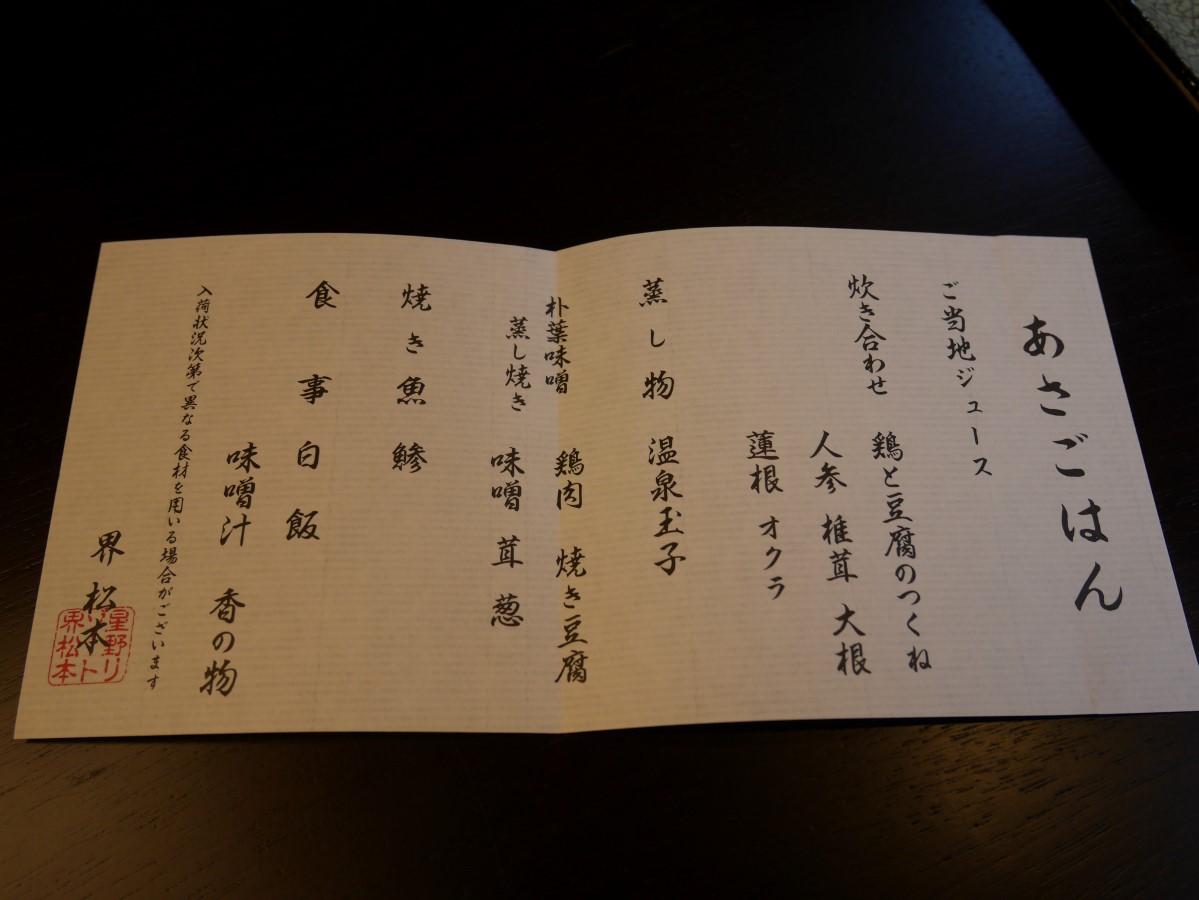 あさごはん
ご当地ジュース
炊き合わせ
鶏と豆腐のつくね
人参 椎茸 大根
蓮根 オクラ
蒸し物 温泉玉子
朴葉味噌
蒸し焼き
鶏肉 焼き豆腐
味噌 茸 葱
焼き魚 鯵
食事 白飯
味噌汁 香の物
入荷状況次第で異なる食材を用いる場合がございます
界 松本
星野リ
ゾート
界松本